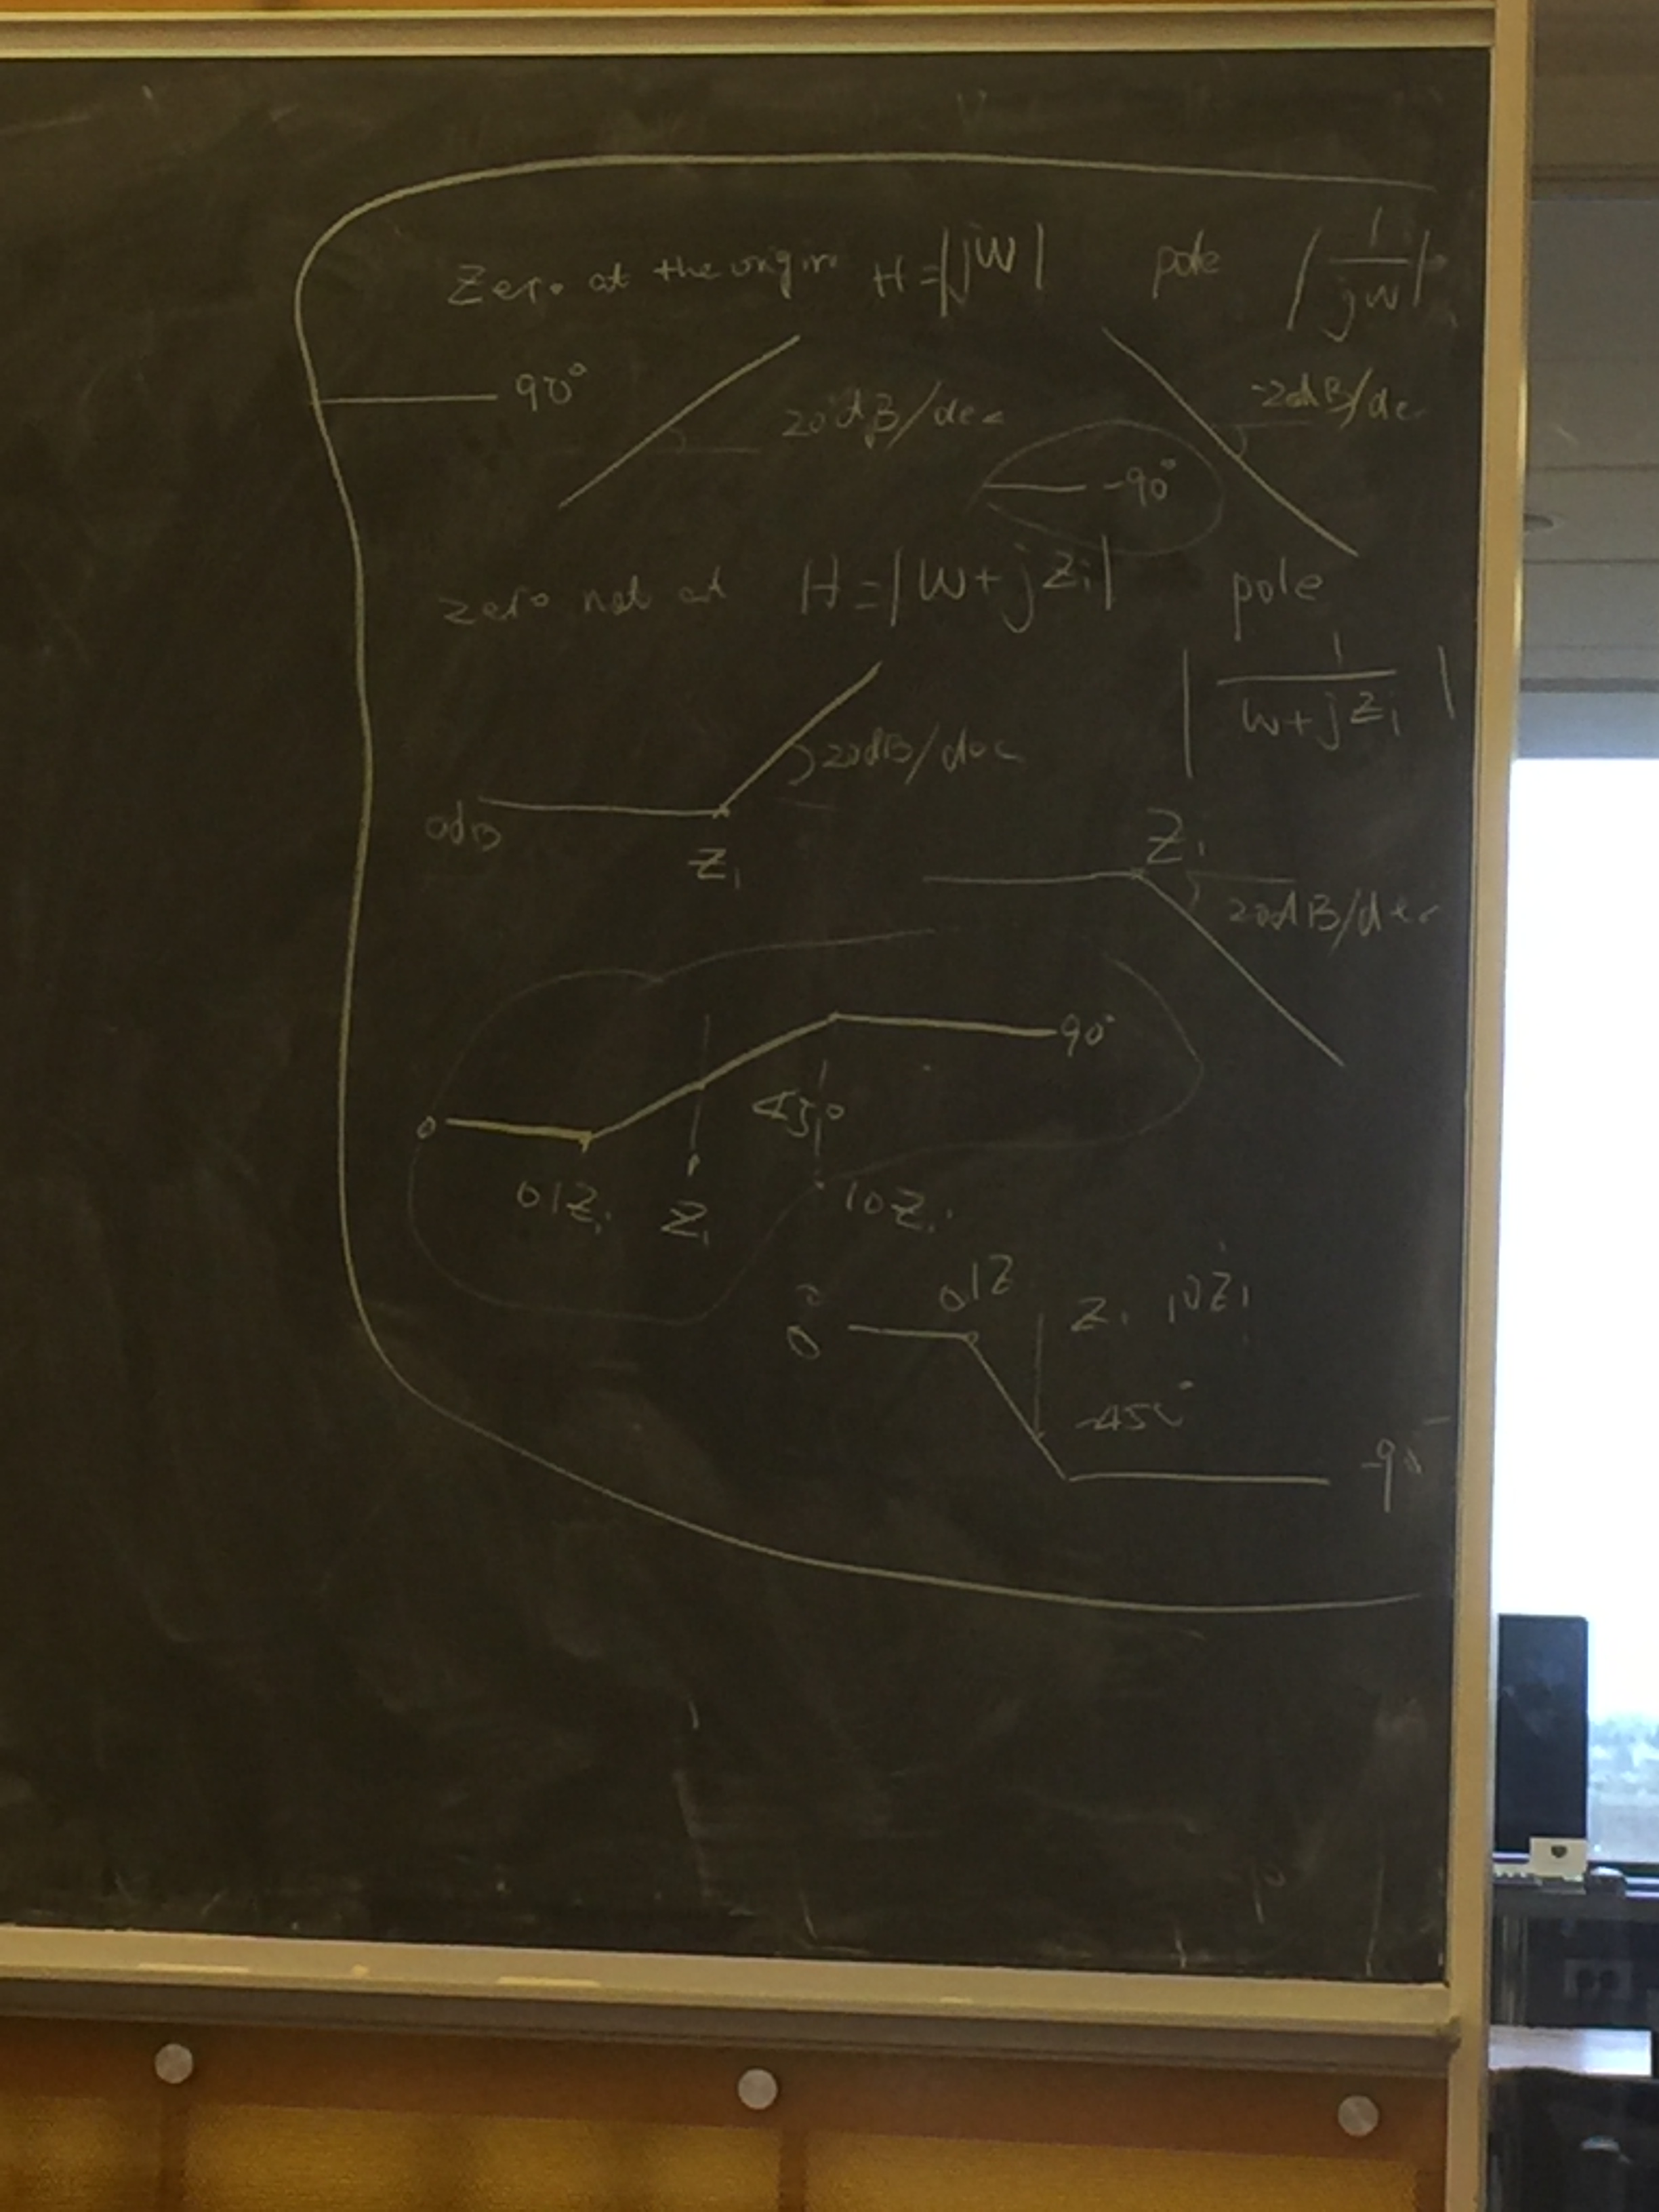 Zero at the origin H=|jW| pole |1/jw|
90°
20dB/dec
-20dB/dec
-90°
zero not at H=|W+jZ₁| pole
|1/W+jZ₁|
20dB/dec
0dB
Z₁
Z₁
20dB/dec
90°
45°
0
01Z₁ Z₁ 10Z₁
01Z Z₁ 10Z₁
0
-45°
-90